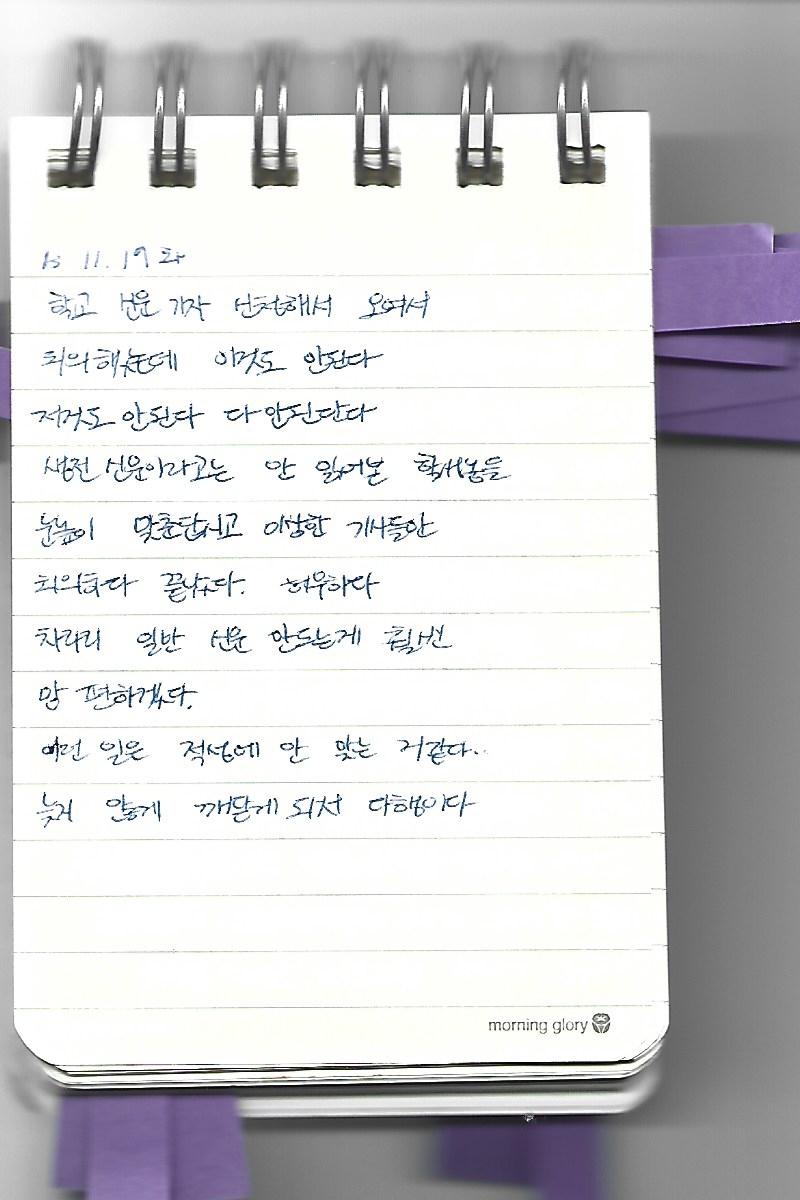 11. 19 화
학교 신문 기자 신청해서 모여서
회의했는데 이것도 안된다
저것도 안된다 다 안된단다
생전 신문이라고는 안 읽어본 학생놈들
눈높이 맞춘답시고 이상한 기사들만
회의하다 끝났다. 허무하다
차라리 일반 신문 만드는게 훨씬
맘 편하겠다.
이런 일은 적성에 안 맞는 거같다..
늦지 않게 깨닫게 되서 다행이다
morning glory